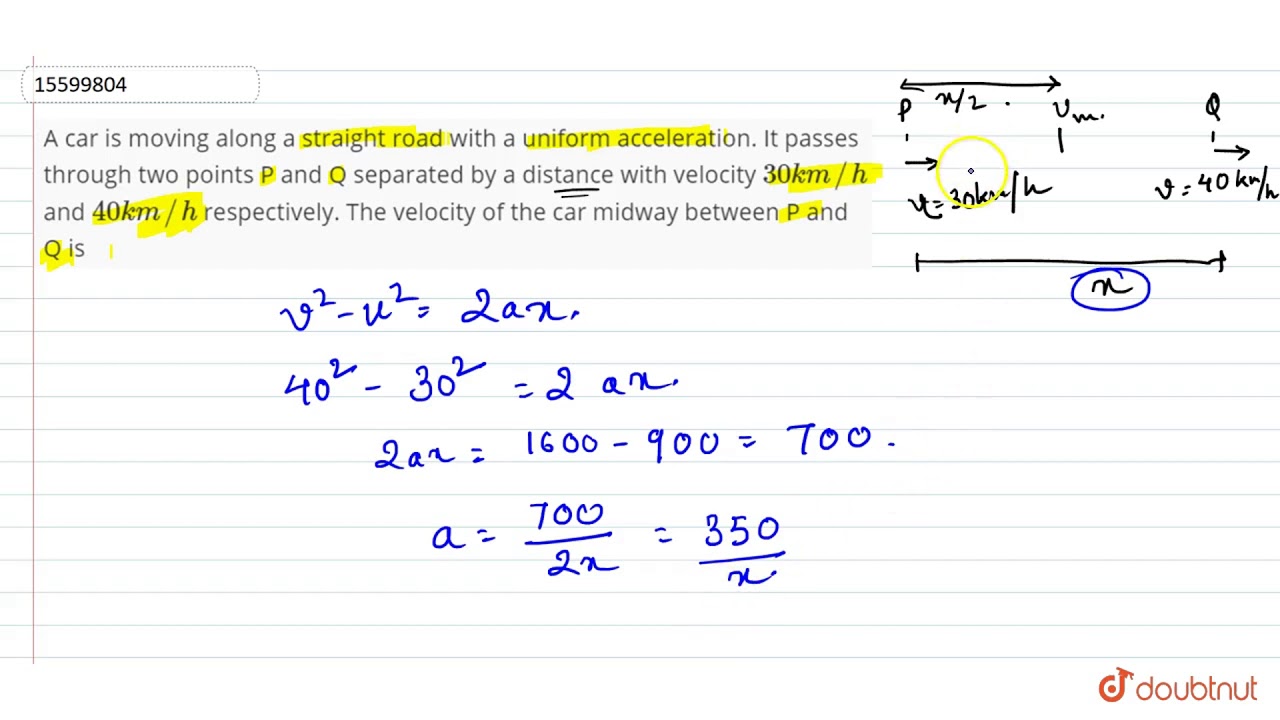 15599804
A car is moving along a straight road with a uniform acceleration. It passes
through two points P and Q separated by a distance with velocity 30km/h
and 40km/h respectively. The velocity of the car midway between P and
Q is
x/2 .
P vm. Q
u=30km/h v=40km/h
x
v²-u²= 2ax.
40² - 30² = 2 ax.
2ax = 1600 - 900 = 700.
a = 700/2x = 350/x
doubtnut